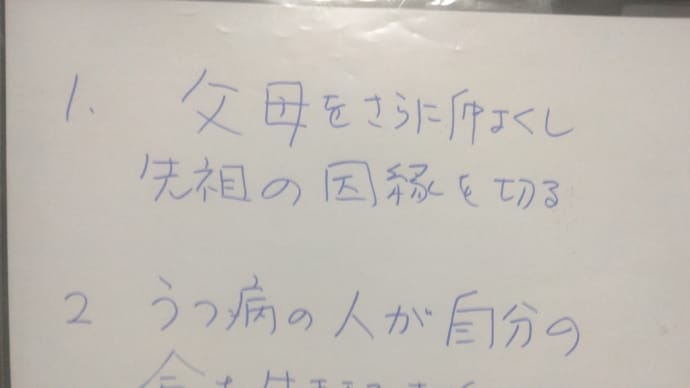 1、 父母をさらに仲よくし
先祖の因縁を切る
2 うつ病の人が自分の